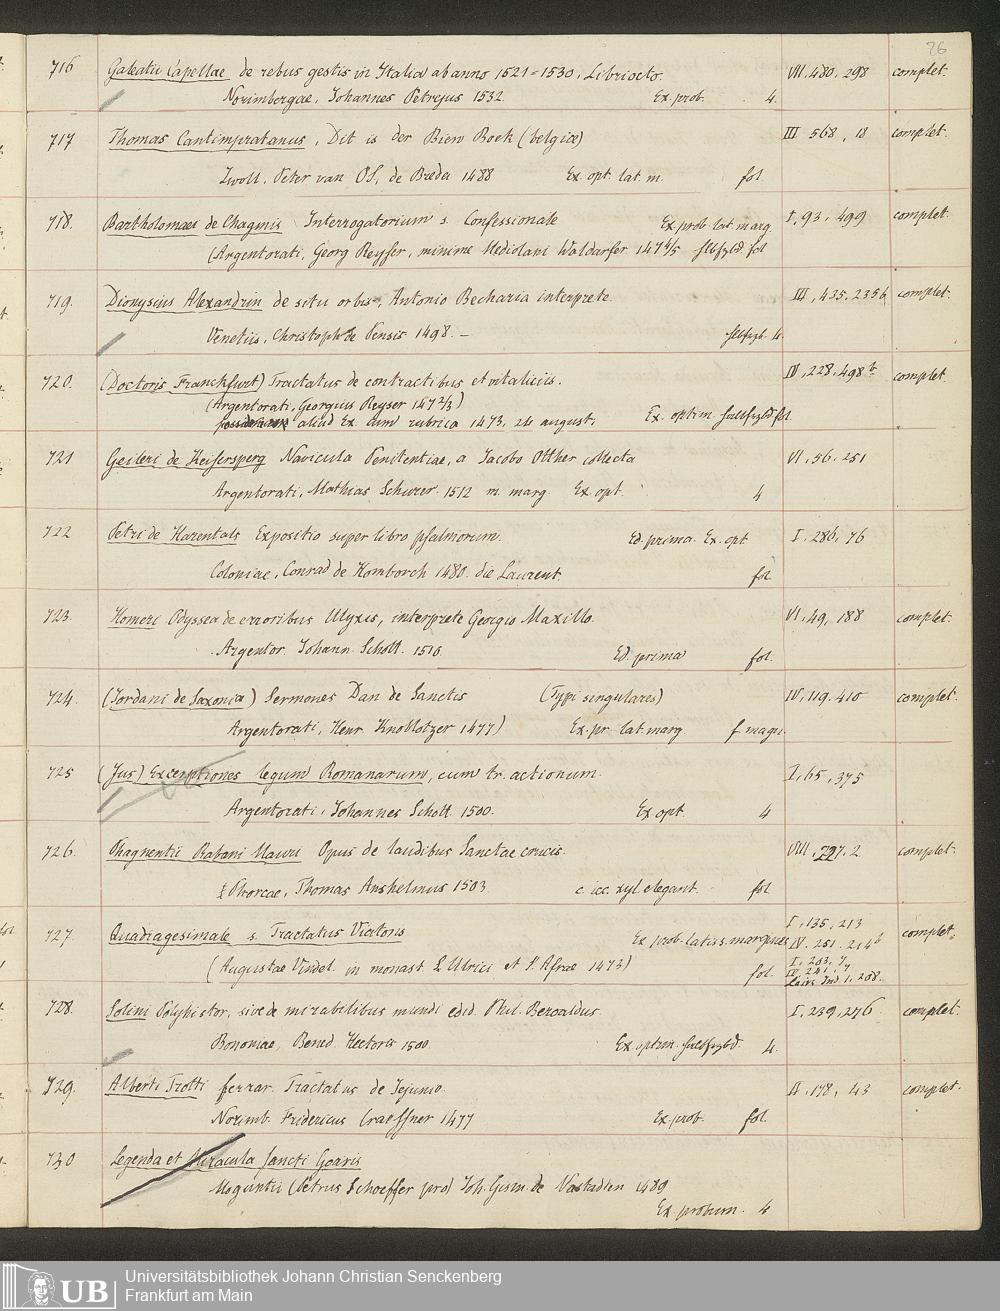 26
716 Galeatii Capellae de rebus gestis in Italia ab anno 1521-1530, Libri octo. VII, 480, 298 complet.
Norimbergae, Johannes Petrejus 1532. Ex. prob. 4.
717 Thomas Cantimpratanus, Dit is der Bien Boek (belgice) III 568, 18 complet.
Zwoll, Peter van Os, de Breda 1488 Ex. opt. lat. m. fol.
718. Bartholomaei de Chaymis Interrogatorium s. Confessionale Ex. prob. lat. marg. I, 93, 499 complet.
(Argentorati, Georg Reysser, minime Mediolani Waldarfer 1474/5 fol
719. Dionysius Alexandrin de situ orbis, Antonio Becharia interprete. III, 435, 2356 complet.
Venetiis, Christoph de Pensis 1498. – 4.
720. (Doctoris Franckfurt) Tractatus de contractibus et vitaliciis. IV, 228, 498 b complet.
(Argentorati, Georgius Reyser 1472/3)
aliud Ex. cum rubrica 1473, 24 august. Ex. optim. fol.
721 Geileri de Keisersperg Navicula Penitentiae, a Jacobo Otther collecta VI, 56, 251
Argentorati, Mathias Schurer 1512 m. marg. Ex. opt. 4
722 Petri de Harentals Expositio super libro psalmorum. Ed. prima. Ex. opt. I, 286, 76
Coloniae, Conrad de Homborch 1480. die Laurent. fol.
723. Homeri Odyssea de erroribus Ulyxis, interprete Georgio Maxillo. VI, 49, 188 complet.
Argentor. Johann Schott. 1510. Ed. prima fol.
724. (Jordani de Saxonia) Sermones Dan de Sanctis (Typi singulares) IV, 119, 410 complet.
Argentorati, Henr Knoblotzer 1477) Ex. pr. lat. marg f magn.
725 (Jus) Exceptiones legum Romanarum, cum tr. actionum. I, 65, 375
Argentorati, Johannes Schott. 1500. Ex opt. 4
726. Magnentii Rabani Mauri Opus de laudibus Sanctae crucis. VIII, 227, 2 complet.
Phorcae, Thomas Anshelmus 1503 c. icc. xyl. elegant. fol
727. Quadragesimale s. Tractatus Viatoris Ex prob. latiss. margines I, 135, 213 complet.
IV. 251. 214 b
(Augustae Vindel. in monast. S. Ulrici et S. Afrae 1473) fol. I. 203, 7
IV. 241. 7
Ind 1. 208.
728. Solini Polyhistor, sive de mirabilibus mundi edid. Phil. Beroaldus I, 239, 276 complet.
Bononiae, Bened. Hectoris 1500. Ex. optim. 4.
729. Alberti Trotti ferrar. Tractatus de Jejunio. II, 178, 43 complet.
Norimb. Fridericus Creussner 1477 Ex. prob. fol.
730 Legenda et Miracula Sancti Goaris
Moguntii (Petrus Schoeffer pro) Joh. Gism. de Nastadten 1489
Ex. probum. 4
UB
Universitätsbibliothek Johann Christian Senckenberg
Frankfurt am Main